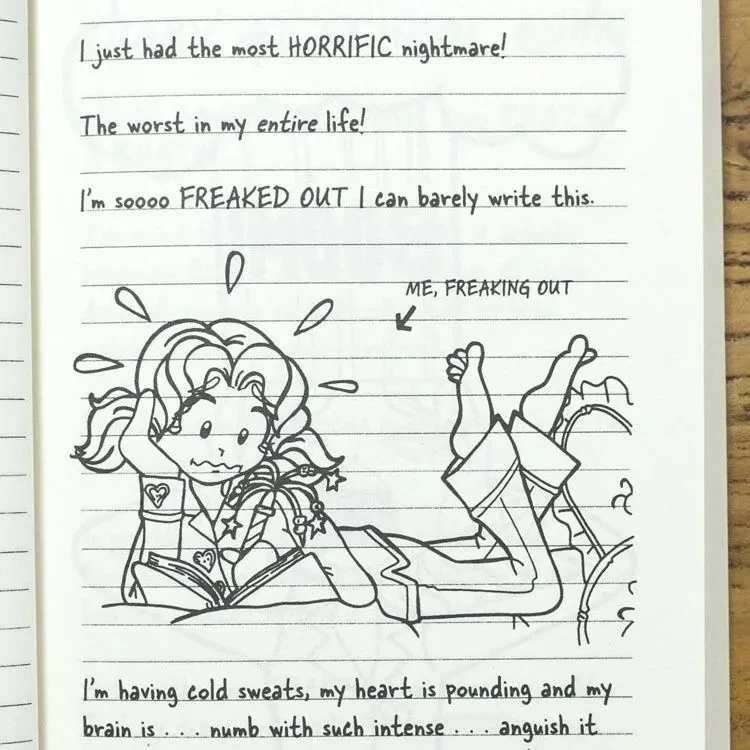 I just had the most HORRIFIC nightmare!
The worst in my entire life!
I'm soooo FREAKED OUT I can barely write this.
ME, FREAKING OUT
I'm having cold sweats, my heart is pounding and my
brain is . . . numb with such intense . . . anguish it